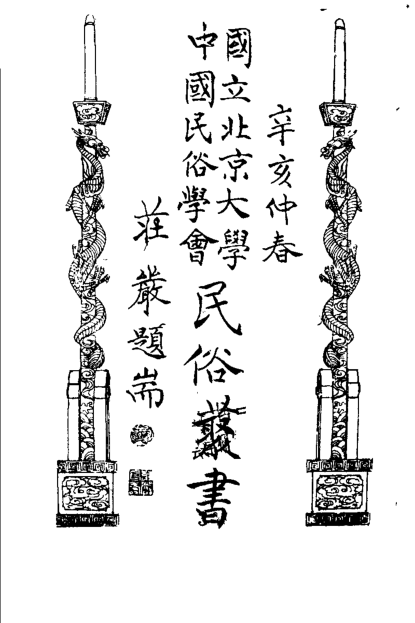 辛亥仲春
國立北京大學
中國民俗學會
民俗叢書
莊嚴題耑